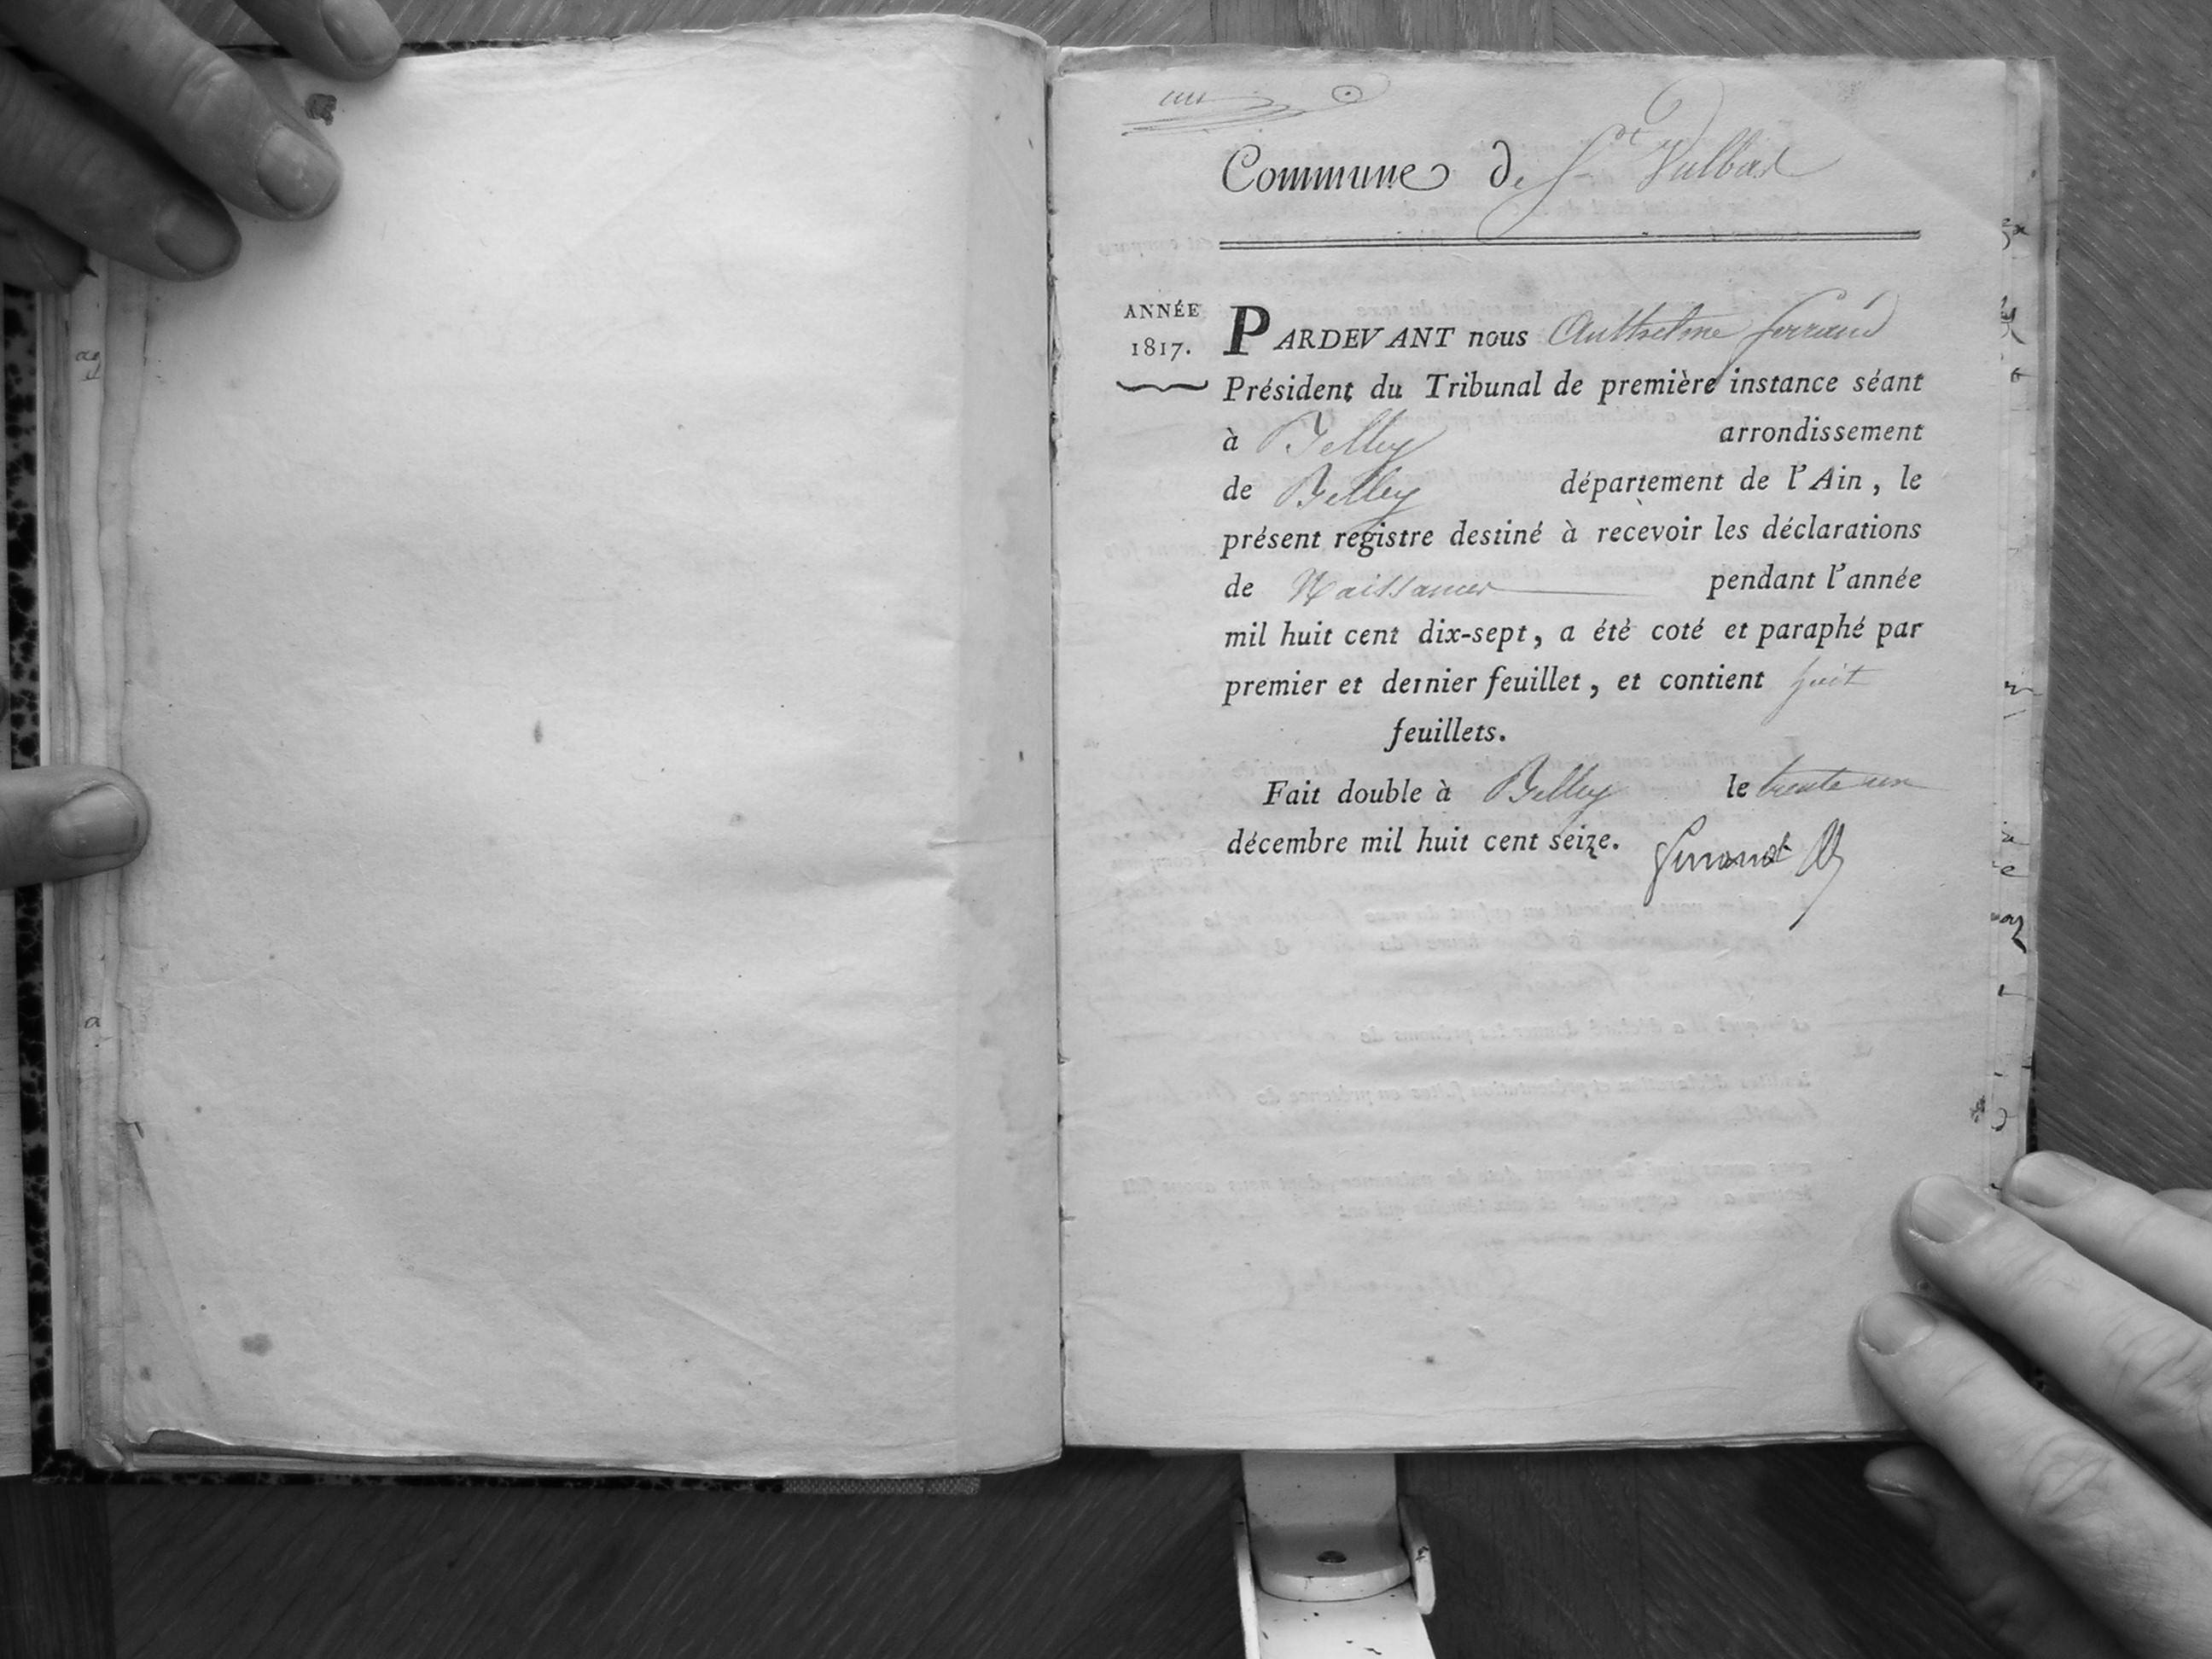 un
Commune de St Vulbas
ANNÉE
1817.
PARDEVANT nous Anthelme ferrand
Président du Tribunal de première instance séant
à Belley arrondissement
de Belley département de l'Ain, le
présent registre destiné à recevoir les déclarations
de Naissances pendant l'année
mil huit cent dix-sept, a été coté et paraphé par
premier et dernier feuillet, et contient huit
feuillets.
Fait double à Belley le trente un
décembre mil huit cent seize. ferrand